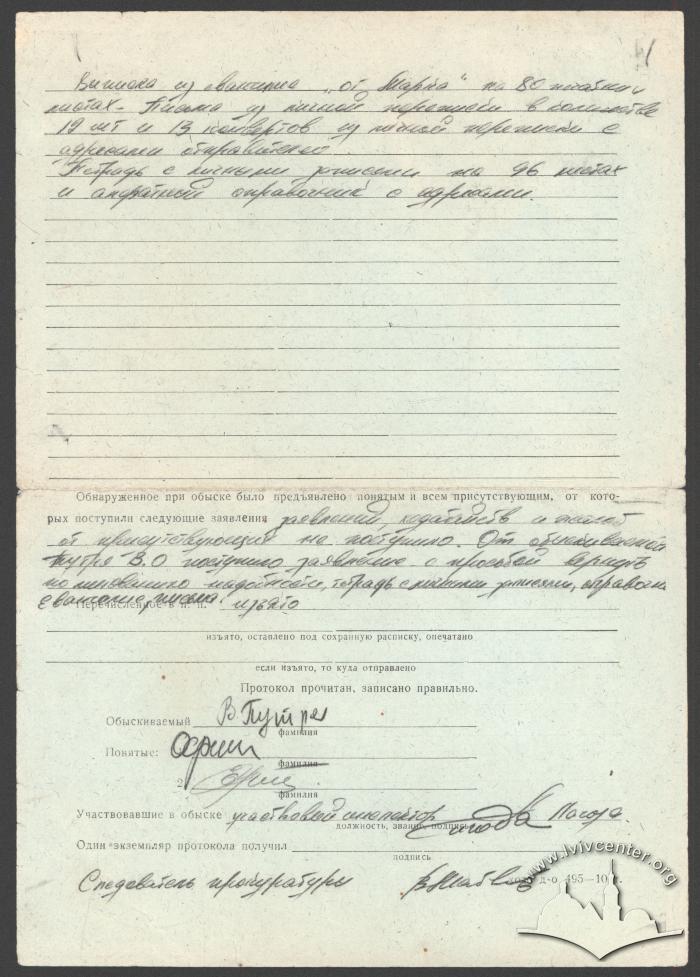 Выписка из евангилия „от Марка" на 80
листах - Письма из личной переписки в количестве
19 шт и 13 конвертов из личной переписки с
адресами отправителей
Тетрадь с личными записями на 96 листах
и справочник с адресами.
Обнаруженное при обыске было предъявлено понятым и всем присутствующим, от кото-
рых поступили следующие заявления заявлений, ходатайств и жалоб
от присутствующих не поступило. От обыскиваемой
Путря В.О поступило заявление с просьбой вернуть
по надобности, тетрадь с личными записями,
евангилие, письма.
Перечисленное в п. п. изъято
изъято, оставлено под сохранную расписку, опечатано
если изъято, то куда отправлено
Протокол прочитан, записано правильно.
Обыскиваемый В Путря
фамилия
Понятые:
фамилия
2
фамилия
Участвовавшие в обыске участковый инспектор
должность, звание, подпись
Один экземпляр протокола получил
подпись
Следователь прокуратуры
495—10
www.lvivcenter.org